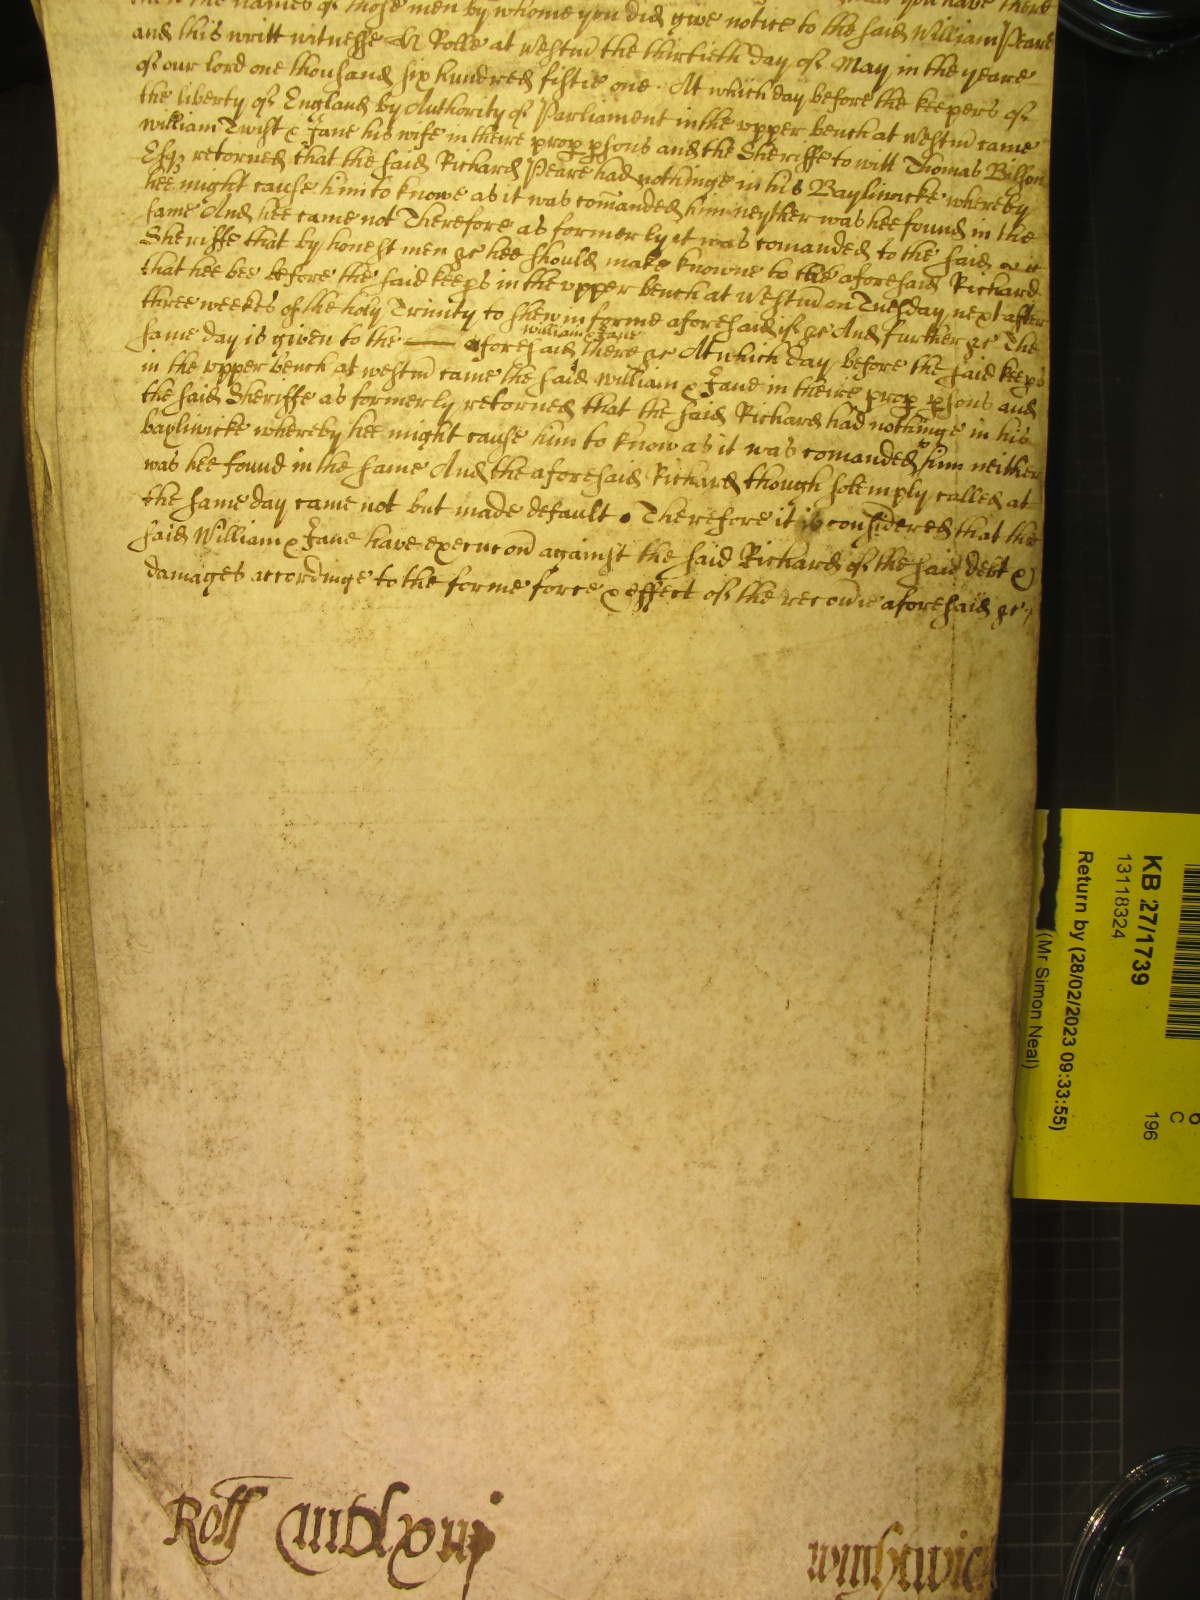 the names of those men by whome you did give notice to the said William Peare you have there
and this writt witnesse H Rolle at Westm the thirtieth day of May in the yeare
of our lord one thousand six hundred fiftie one . At which day before the keepers of
the liberty of England by Authority of Parliament in the upper bench at Westm came
william Twist & Jane his wife in theire prop psons and the Sheriffe to witt Thomas Bilson
Esqz retorned that the said Richard Peare had nothinge in his Baylinicke whereby
hee might cause him to knowe as it was comanded him neyther was hee found in the
same And hee came not Therefore as formerly it was comanded to the said
Sheriffe that by honest men &c hee should make knowne to the aforesaid Richard
that hee bee before the said keeps in the upper bench at Westm on Tuesday next after
three weekes of the holy Trinity to shew in forme aforesaid if &c And further &c The
william & Jane
same day is given to the aforesaid there &c At which day before the said keeps
in the upper bench at westm came the said William & Jane in theire prop psons and
the said Sheriffe as formerly retorned that the said Richard had nothinge in his
baylinicke whereby hee might cause him to know as it was comanded him neither
was hee found in the same And the aforesaid Richard though solemply called at
the same day came not but made default . Therefore it is considered that the
said William & Jane have execucon against the said Richard of the said debt &
damages accordinge to the forme force & effect of the recovie aforesaid &c
Roll
KB 27/1739
13118324
Return by (28/02/2023 09:33:55)
(Mr Simon Neal)
6
C
196